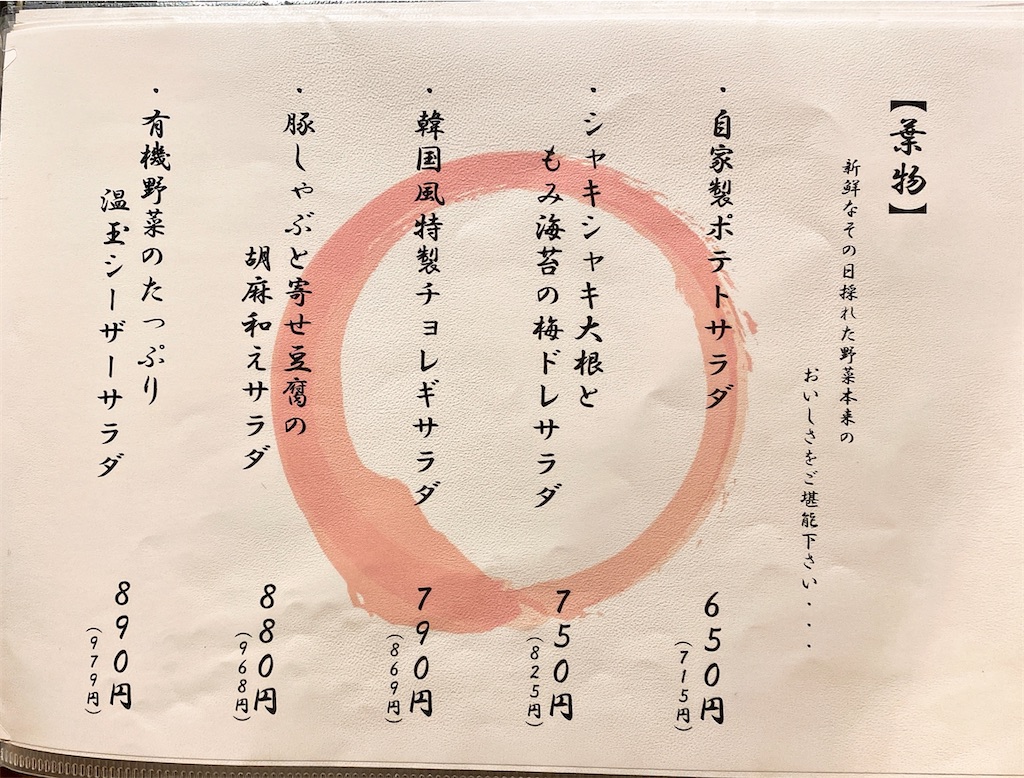 【葉物】
新鮮なその日採れた野菜本来の
おいしさをご堪能下さい・・・
・自家製ポテトサラダ
650円
(715円)
・シャキシャキ大根と
もみ海苔の梅ドレサラダ
750円
(825円)
・韓国風特製チョレギサラダ
790円
(869円)
・豚しゃぶと寄せ豆腐の
胡麻和えサラダ
880円
(968円)
・有機野菜のたっぷり
温玉シーザーサラダ
890円
(979円)